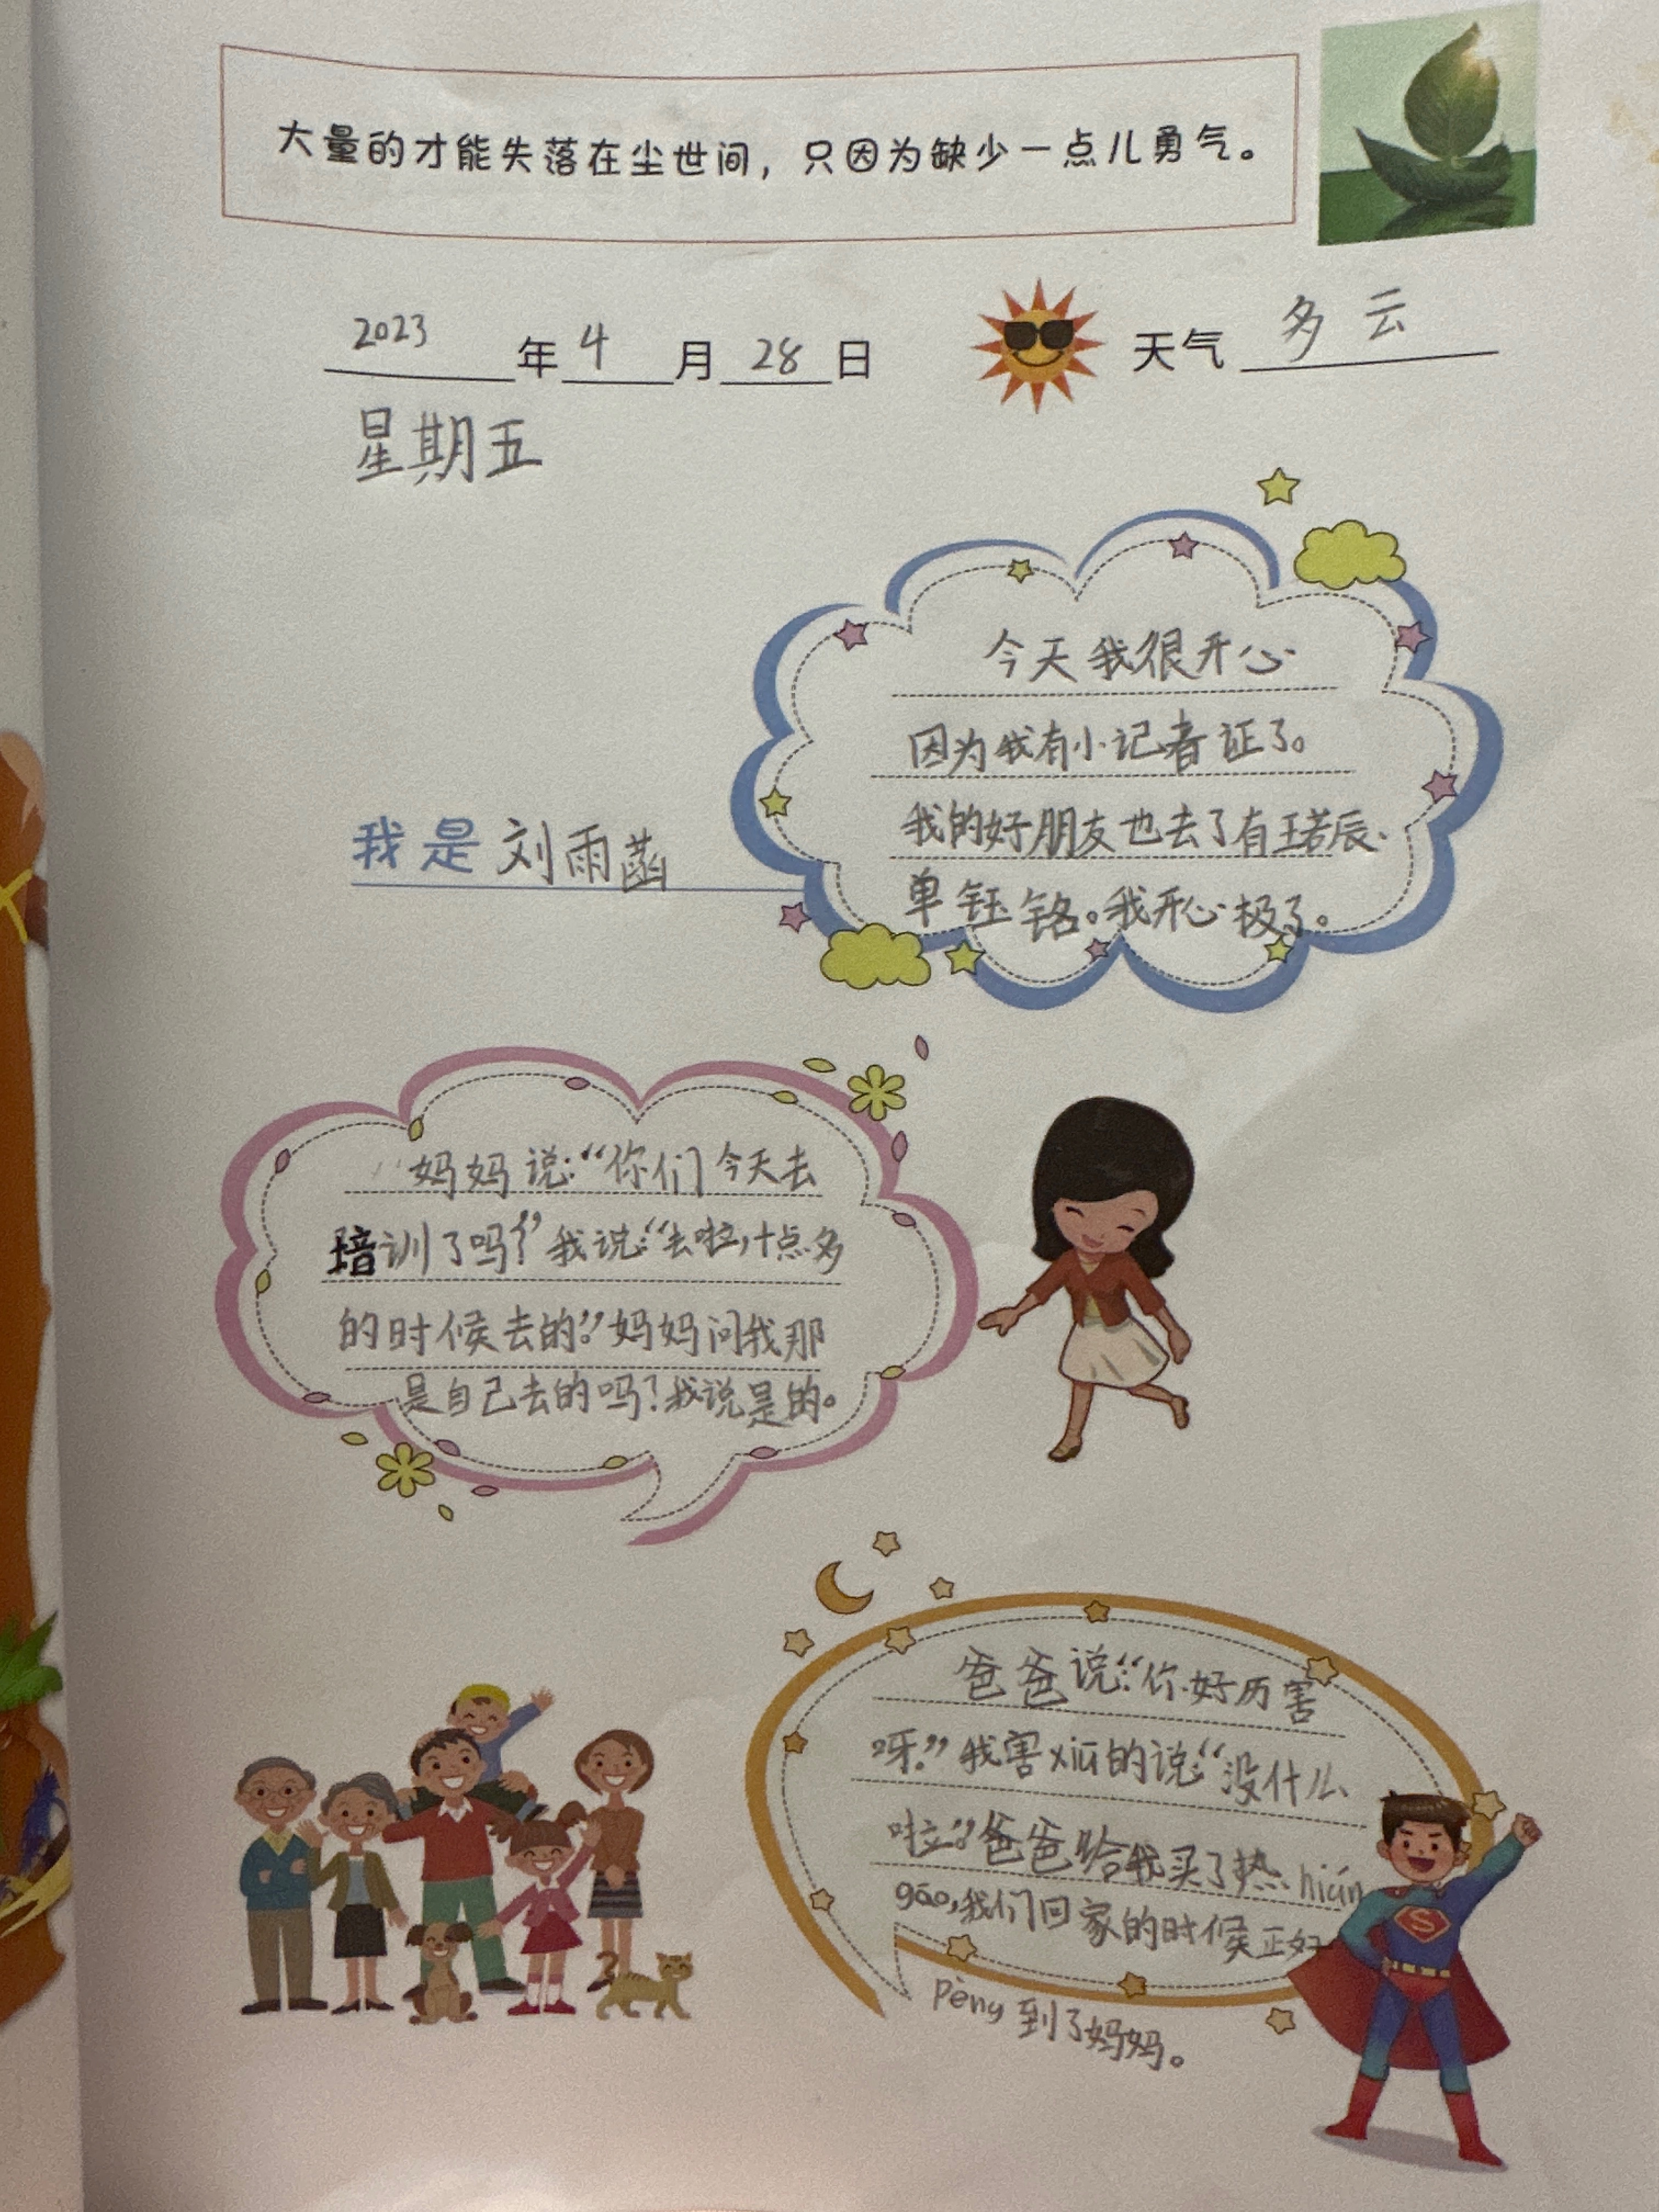 大量的才能失落在尘世间，只因为缺少一点儿勇气。
2023年4月28日 天气 多云
星期五
今天我很开心
因为我有小记者证了。
我的好朋友也去了有王若辰、
单钰铭。我开心极了。
我是刘雨菡
妈妈说：“你们今天去
培训了吗？”我说：“去啦，十点多
的时候去的。”妈妈问我那
是自己去的吗？我说是的。
爸爸说：“你好厉害
呀。”我害xiū的说：“没什么
啦。”爸爸给我买了热
gāo，我们回家的时候正好
pèng到了妈妈。